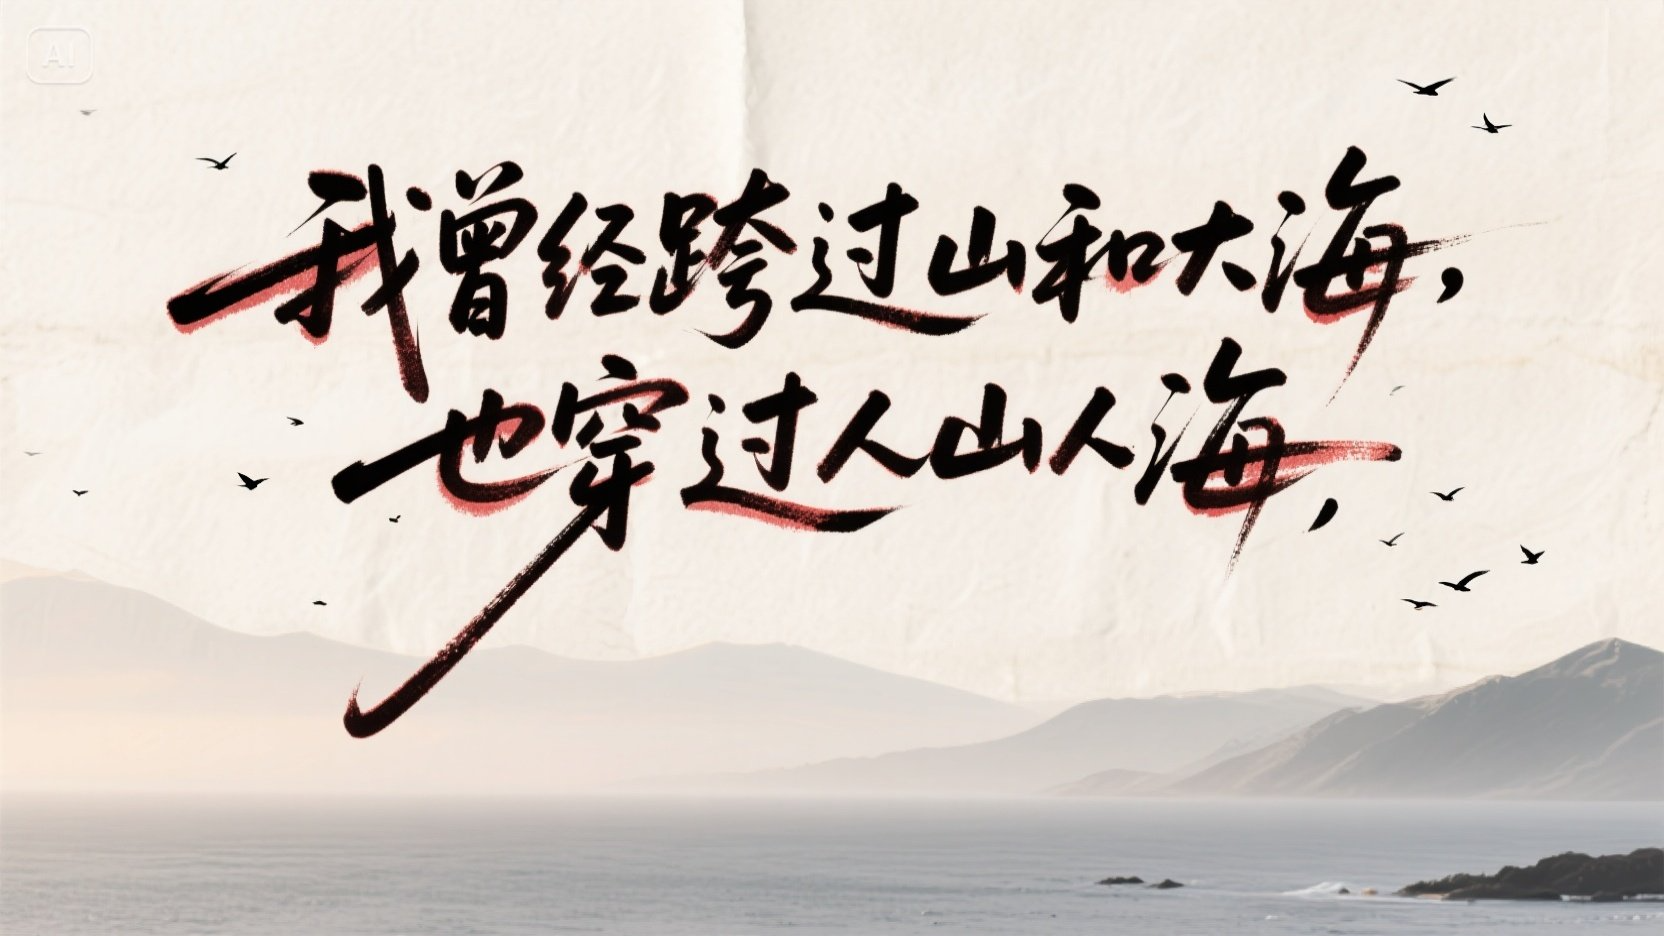 AI
我曾经跨过山和大海，
也穿过人山人海，